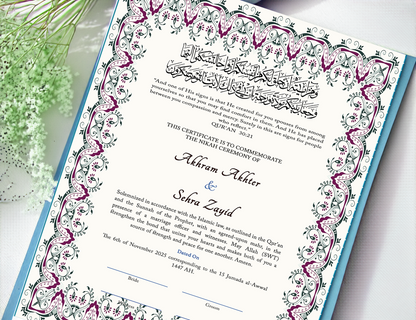 "And one of His signs is that He created for you spouses from among
yourselves so that you may find comfort in them. And He has placed
between you compassion and mercy. Surely in this are signs for people
who reflect."
QUR'AN 30:21
THIS CERTIFICATE IS TO COMMEMORATE
THE NIKAH CEREMONY OF
Akhram Akhter
&
Sehra Zayid
Solemnized in accordance with the Islamic law, as outlined in the Qur'an
and the Sunnah of the Prophet, with an agreed-upon mahr, in the
presence of a marriage officer and witnesses. May Allah (SWT)
strengthen the bond that unites your hearts and makes both of you a
source of strength and peace for one another, Ameen.
Dated On
The 6th of November 2025 corresponding to the 15 Jumada al-Awwal
1447 AH.
Bride
Groom